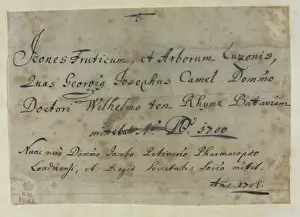 Icones Fruticum, et Arborum Luzonis,
Quas Georgiq Josephus Camel Domino
Doctori Wilhelmo ten Rhyne Battaviam
mittebat Aº 1700
Nunc vero Domino Jacobo Petiverio Pharmacopæo
Londinensi, et Regiæ Societatis Socio mittit.
Año 1701.